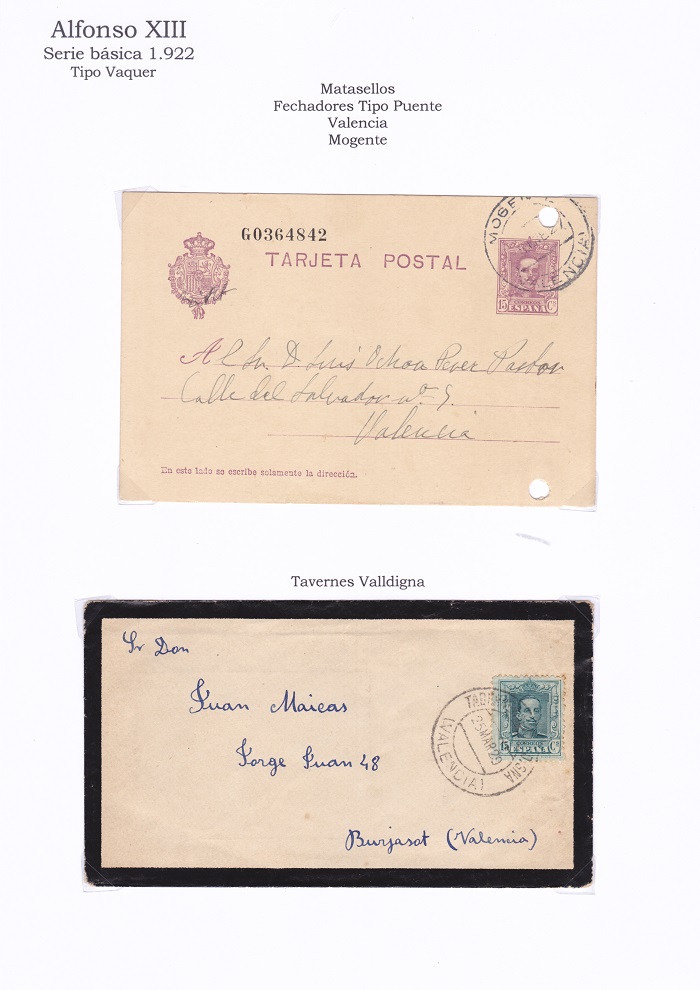 Alfonso XIII
Serie básica 1.922
Tipo Vaquer
Matasellos
Fechadores Tipo Puente
Valencia
Mogente
G0364842
TARJETA POSTAL
MOGEN
VALENCIA
CORREOS
15 ESPAÑA Cs
Al Sr. D. Luís Ochoa
Calle del Salvador nº
Valencia
En este lado se escribe solamente la dirección.
Tavernes Valldigna
Sr Don
Juan Maicas
Jorge Juan 48
Burjasot (Valencia)
25 MAR 29
(VALENCIA)
CORREOS
15 ESPAÑA Cs